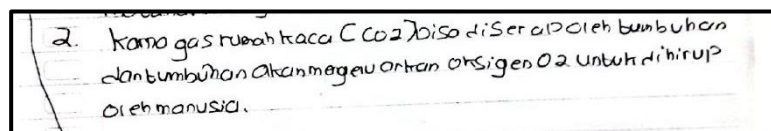 2. Karna gas rumah kaca (CO2) biso diserap oleh tumbuhan
dan tumbuhan akan mengeluarkan oksigen O2 untuk dihirup
oleh manusia.